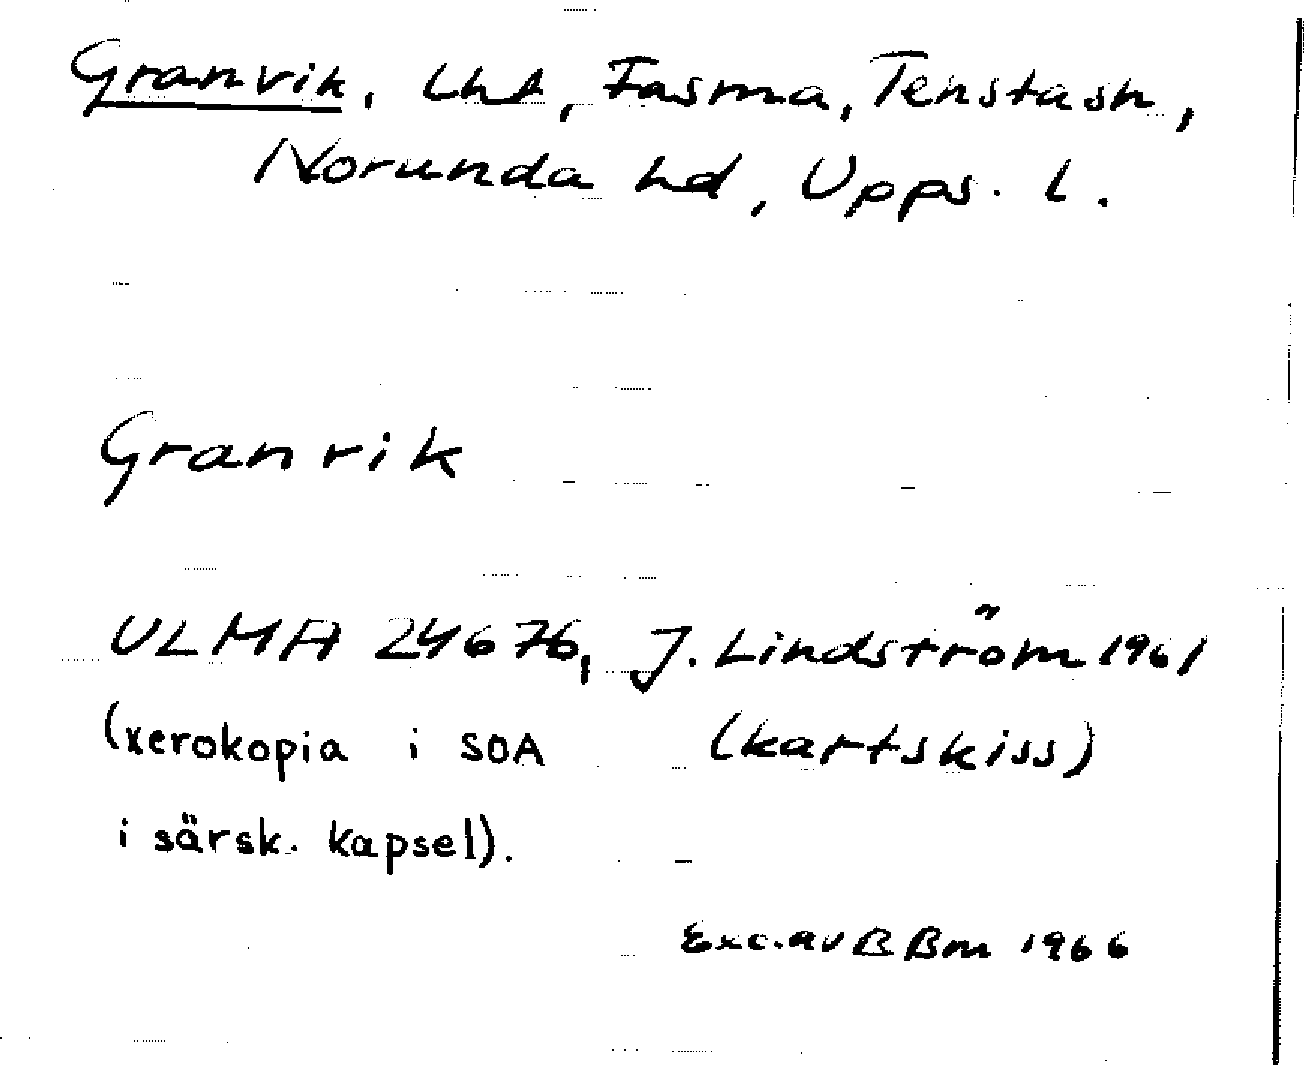 Granvik, Lht, Fasma, Tensta sn,
Norunda hd, Upps. l.
Granvik
ULMA 24676, J. Lindström 1961
(xerokopia i SOA (kartskiss)
i särsk. kapsel).
Exc. av B Bm 1966